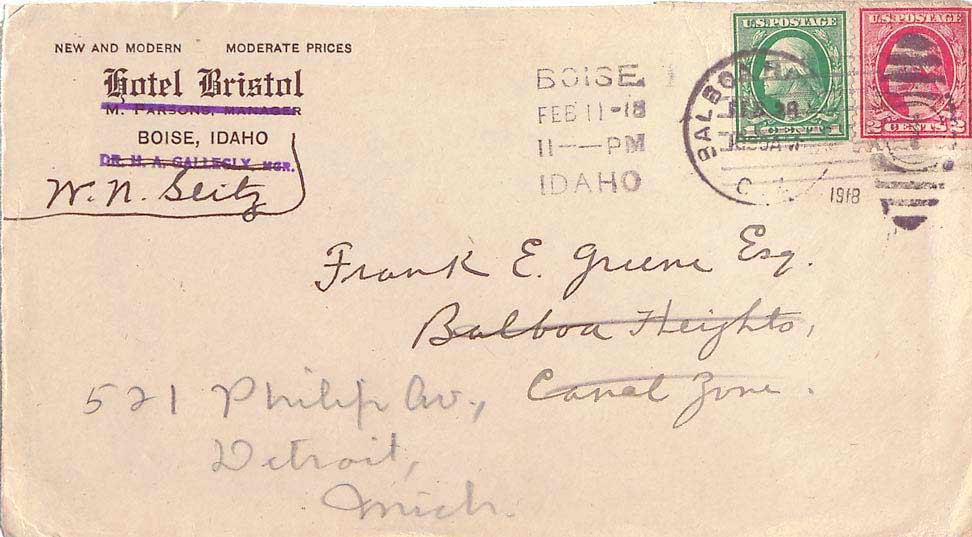 NEW AND MODERN MODERATE PRICES
Hotel Bristol
M. PARSONS, MANAGER
BOISE, IDAHO
DR. H. A. GALLEGLY, MGR.
W. N. Seitz
BOISE 1
FEB 11-18
11--PM
IDAHO
BALBOA
FEB 28
1918
U.S. POSTAGE
1 CENT 1
U.S. POSTAGE
2 CENTS 2
Frank E. Greene Esq.
Balboa Heights,
Canal Zone.
521 Philip Av.,
Detroit,
Mich.